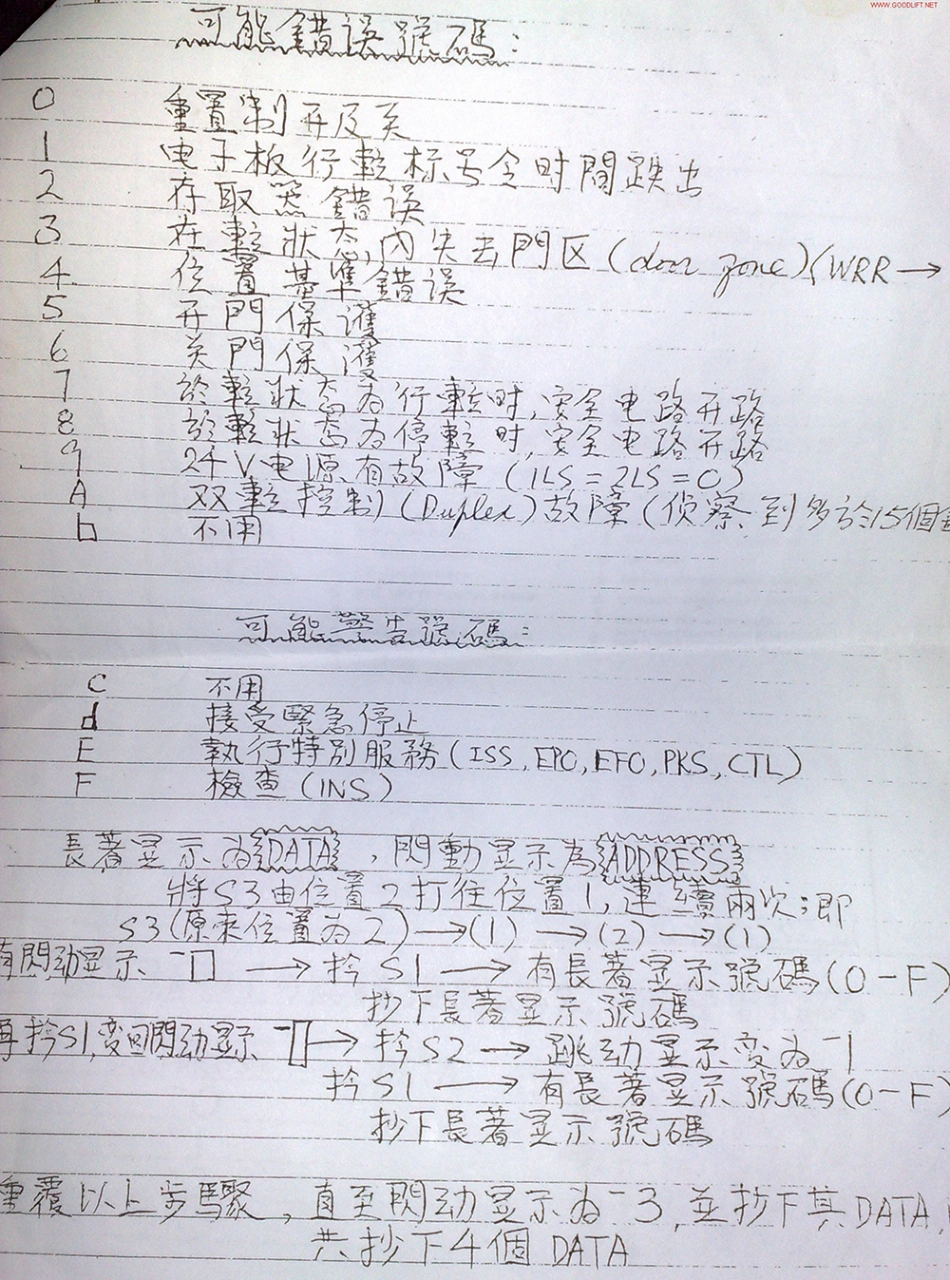 WWW.GOODLIFT.NET
可能錯誤號碼:
0 重置制开及关
1 电子板行䡛标号令时間跌出
2 存取器錯誤
3 在䡛狀态,內失去門区(door zone)(WRR→
4 位置基準錯誤
5 开門保護
6 关門保護
7 於䡛狀态为行䡛时,安全电路开路
8 於䡛狀态为停䡛时,安全电路开路
9 24V电源有故障(1LS=2LS=0)
A 双䡛控制(Duplex)故障(侦察到多於15個
b 不用
可能警告號碼:
C 不用
d 接受緊急停止
E 執行特別服務(ISS,EPO,EFO,PKS,CTL)
F 檢查(INS)
長著显示为DATA,閃動显示為ADDRESS
將S3由位置2打往位置1,連續兩次;即
S3(原来位置为2)→(1)→(2)→(1)
有閃动显示 ‾0→拎S1→有長著显示號碼(0-F)
抄下長著显示號碼
再拎S1,变回閃动显示 ‾0→拎S2→跳动显示变为‾1
拎S1→有長著显示號碼(0-F)
抄下長著显示號碼
重覆以上步驟,直至閃动显示为‾3,並抄下其DATA,
共抄下4個DATA